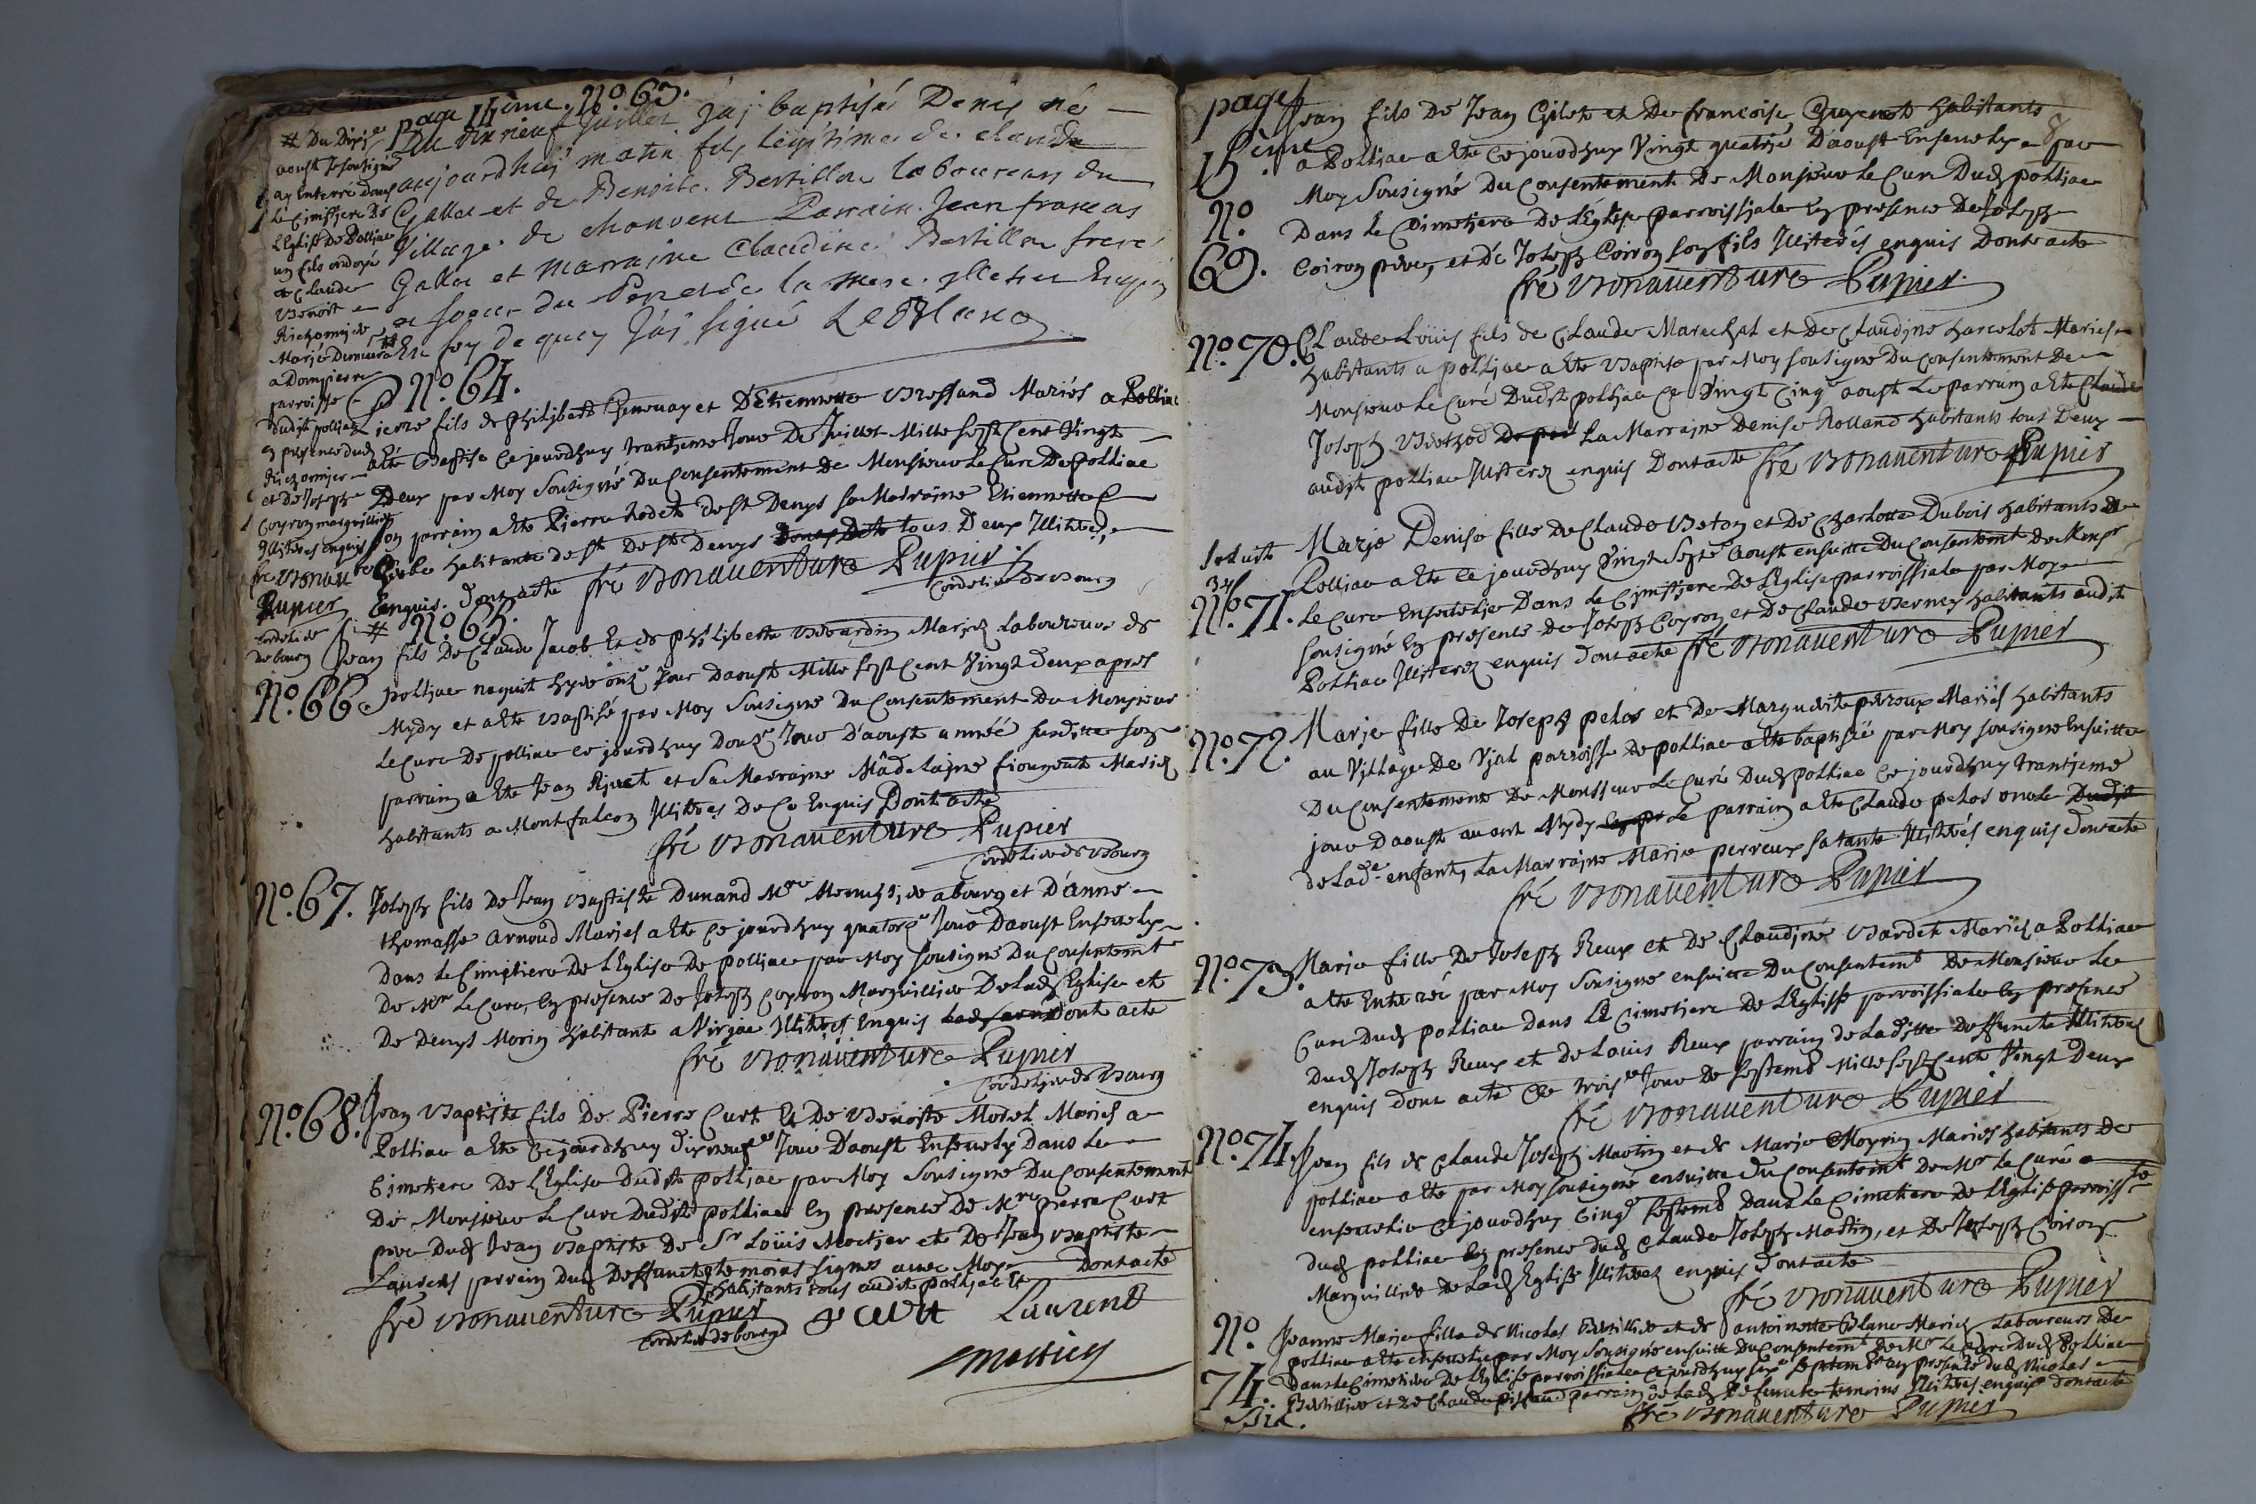 page 14ième. No. 63.
Du dix neuf Juillet J'aj baptisé Denis né
aujourdhuj matin fils legitime de claude
Gallet et de Benoite Bertillon laboureurs du
Village de chanvent Parrain Jean francois
Gallet et marraine Claudine Bertillon frere
et soeur du Pere et de la mere illetres Enquis
En foy de quoy J'aj signé LeBlanc
# Du
aoust Je Sousigné
ay Enterré dans
le Cimistiere de
L'Eglise de Polliac
un fils ondoyé
de Claude
Benoit
et de
Marie
a Dompierre
parroisse
dudit polliac
en presence dud
et de Joseph
Coyron marguillier
Illiteres enquis
fré Bonauenture
Pupier
Cordelier
de bourg
No. 64.
Pierre fils de Philibert Genouay et D'Etiennette Bressand Mariés a Polliac
a été Baptise ce jourdhuy trantieme Jour De Juillet Mille sept Cent Vingt
Deux par Moy Sousigné Du Consentement de Monsieur le Curé De Polliac
son parrain a été Pierre Rodet de St Denys sa Marraine Etiennette
habitante de St De St Denys tous Deux Illiteres,
Enquis. Dont acte fré Bonauenture Pupier
Cordelier de Bourg
# No. 65.
No. 66.
Jean fils De Claude Jacob Et de Philiberte Bernardin Mariez Laboureurs de
polliac naquit hyer onze Jour Daoust Mille sept Cent Vingt deux apres
Mydy et a été Baptisé par Moy Sousigné Du Consentement De Monsieur
le Curé De polliac ce jourdhuy Douze Jour D'aoust année susditte son
parrain a été Jean Rivet et sa Marraine Madelaine fiougeut Mariez
habitants a Montfalcon Illiteres De Ce Enquis Dont acte
fré Bonauenture Pupier
Cordelier de Bourg
No. 67. Joseph fils de Jean Baptiste Dunand Mre Menuisier a bourg et D'anne
thomasse arnoud Mariés a été Ce jourdhuy quatorze Jour Daoust Enseuely
Dans le Cimetiere De l'Eglise De polliac par Moy Sousigné Du Consentemt
De Mr le Curé, En presence De Joseph Coyron Marguillier De lad Eglise et
De Denys Morin habitante a Viriac Illiteres Enquis Dont acte
fré Bonauenture Pupier
Cordelier de Bourg
No. 68. Jean Baptiste fils de Pierre Curt Et De Benoite Morel Mariés a
Polliac a été Ce jourdhuy dix neuf Jour D'aoust Enseuely Dans le
Cimetiere De l'Eglise Dudit polliac par Moy Sousigné Du Consentement
De Monsieur le Curé Dudit polliac En presence De Mre pierre Curt
pere Dud Jean Baptiste De Sr Loüis Mortier et De Jean Baptiste
Laurens parrain Dud Deffunct temoins signes auec Moy Dont acte
habitants tous audit polliac
fré Bonauenture Pupier Curt Laurens
Cordelier de bourg
Mortier
page
15eme.
No
69.
Jean fils De Jean Gilet et De francoise Guyenet habitants
a Polliac a été Ce jourdhuy Vingt quatrie D'aoust Enseuely par
Moy Sousigné Du Consentement De Monsieur le Curé Dud polliac
Dans le Cimetiere De l'Eglise parroissiale En presence De Joseph
Coiron pere, et De Joseph Coiron son fils Illiterés enquis Dont acte
fré Bonauenture Pupier.
No. 70. Claude Loüis fils de Claude Marechal et De Claudine harcelot Mariés
habitants a polliac a été Baptise par Moy sousigné Du Consentement De
Monsieur le Curé Dudit polliac Ce Vingt Cinq aoust le parrain a été Claude
Joseph La Marraine Denise Rolland habitants tous Deux
audit polliac Illiterez enquis Dont acte fré Bonauenture Pupier
No. 71.
Marie Denise fille De Claude Beton et De Charlotte Dubois habitants a
Polliac a été Ce jourdhuy Vingt Sept aoust ensuitte Du Consentemt De Monsr
le Curé Enseuelie Dans le Cimistiere De l'Eglise parroissiale par Moy
Sousigné En presence De Joseph Coyron et De Claude Berney habitants audit
Polliac Illiterez enquis Dont acte fré Bonauenture Pupier
No. 72.
Marie fille De Joseph pelos et De Marguerite perroux Mariés habitants
au Village De Vial parroisse de polliac a été baptisée par Moy sousigné Ensuitte
Du Consentement De Monsieur le Curé Dud polliac Ce jourdhuy trantieme
jour Daoust auant Mydy Le parrain a été Claude pelos oncle Dudit
de Lade enfant, La Marraine Marie perreux sa tante Illiterés enquis Dont acte
fré Bonauenture Pupier
No. 73. Marie fille De Joseph Reux et De Claudine Bardet Mariez a Polliac
a été Enterréé par Moy Sousigné ensuitte Du Consentemt De Monsieur le
Curé Dud polliac Dans le Cimetiere De l'Eglise parroissiale En presence
Dud Joseph Reux et de Louis Reux parrain de laditte Deffuncte Illiterez
enquis dont acte Ce trois Jour De septemb Mille sept Cent Vingt Deux
fré Bonauenture Pupier
No. 74. Jean fils de Claude Joseph Martin et de Marie Moyrin Mariés habitants De
polliac a été par Moy Sousigné ensuitte Du Consentemt De Mr le Curé
enseuelie Ce jourdhuy Cinq Septemb Dans le Cimetiere De l'Eglise parroiss le
dud polliac En presence dud Claude Joseph Martin, et De Joseph Coiron
Marguillier De Lad Eglise Illiterez enquis Dont acte
fré Bonauenture Pupier
No.
74.
Bis.
Jeanne Marie fille de Nicolas Bertillier et de antoinette Blanc Mariez Laboureurs De
polliac a été enseuelie par Moy Sousigné ensuitte Du Consentemt De Mr le Curé Dud Polliac
Dans le Cimetiere De l'Eglise parroissiale Ce jourdhuy Septembre En presence dud Nicolas
Bertillier et de Claude parrain De Lad Defuncte temoins Illiteres enquis Dont acte
fré Bonauenture Pupier